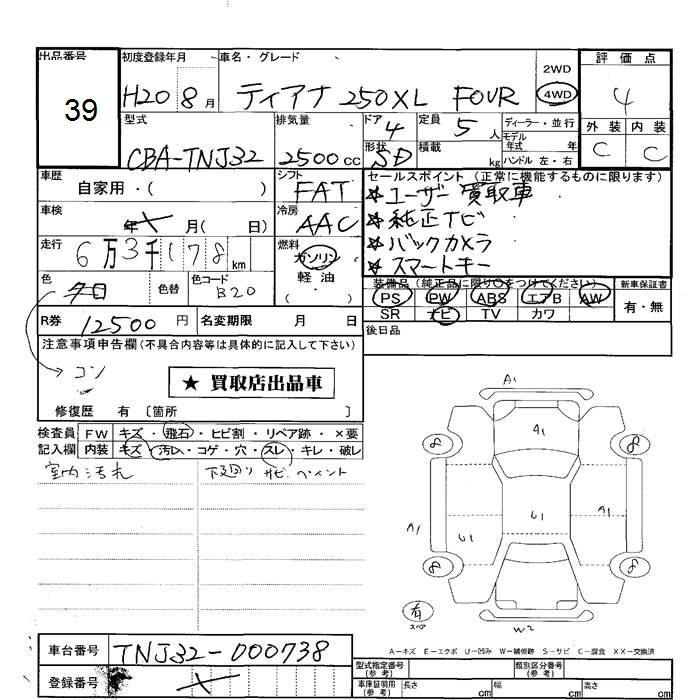 出品番号 初度登録年月 車名・グレード 評価点
39 H20 8月 ティアナ 250XL FOUR 2WD 4WD 4
型式 排気量 ドア 4 定員 5人 ディーラー・並行 外装 内装
モデル年式 年
CBA-TNJ32 2500cc 形状 SD 積載 kg ハンドル 左・右 C C
車歴 シフト セールスポイント(正常に機能するものに限ります)
自家用・( ) FAT ☆ユーザー買取車
車検 冷房 ☆純正ナビ
年 月( 日) AAC ☆バックカメラ
走行 燃料 ☆スマートキー
6万3千178km ガソリン
軽油
・( )
色 クロ 色替 色コード B20 装備品(純正品に限り○をつけてください) 新車保証書
PS PW ABS エアB AW 有・無
SR ナビ TV カワ
R券 12500円 名変期限 月 日 後日品
注意事項申告欄(不具合内容等は具体的に記入して下さい)
コン
★ 買取店出品車
修復歴 有 〔箇所 〕
検査員 FW キズ・飛石・ヒビ割・リペア跡・×要
記入欄 内装 キズ・汚レ・コゲ・穴・スレ・キレ・破レ
室内汚れ 下廻り サビ ペイント
A1
8 A1 8
A1 U1 U1 A1
8 8
有
スペア W2
A－キズ E－エクボ U－凹み W－補修跡 S－サビ C－腐食 XX－交換済
車台番号 TNJ32-000738
登録番号
型式指定番号(参考) 類別区分番号(参考)
車庫証明用(参考) 長さ cm 幅 cm 高さ cm